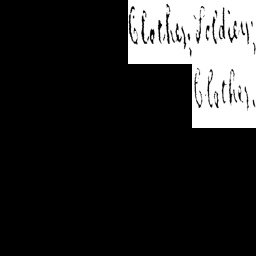 Clothes, Soldiers,
Clothes.